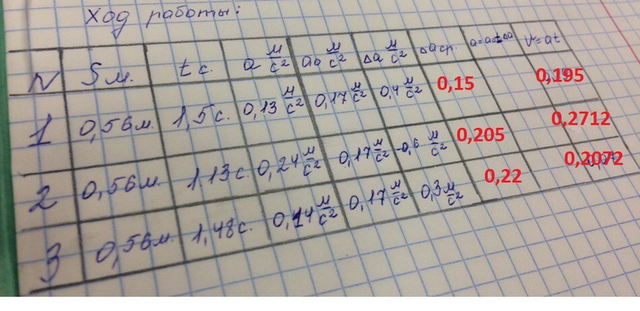 Ход работы:
N S м. t с. a м/с² aа м/с² Δa м/с² Δaср. a=a±Δa V=at
1 0,56м. 1,5с. 0,13 м/с² 0,17 м/с² 0,4 м/с² 0,15 0,195
2 0,56м. 1.13с. 0,24 м/с² 0,17 м/с² -0,6 м/с² 0,205 0,2712
3 0,56м. 1,48с. 0,14 м/с² 0,17 м/с² 0,3 м/с² 0,22 0,2072